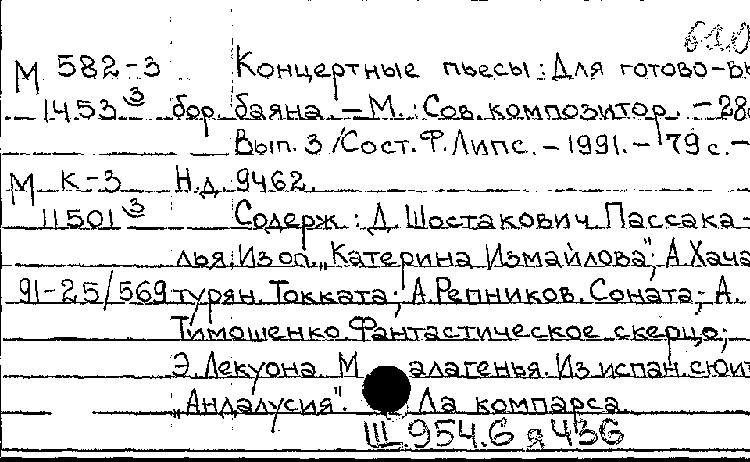 620
М 582-3 Концертные пьесы: Для готово-вы
1453³ бор. баяна. – М.: Сов. композитор. – 28
Вып. 3 /Сост. Ф. Липс. – 1991. – 79 с. –
М К-3 Н.д. 9462.
11501³ Содерж.: Д. Шостакович. Пассака-
лья. Из оп. „Катерина Измайлова"; А. Хача
91-25/569 турян. Токката; А. Репников. Соната; А.
Тимошенко. Фантастическое скерцо;
Э. Лекуона. Малагенья. Из испан. сюит
„Андалусия". Ла компарса.
Ш 954.6 я 436